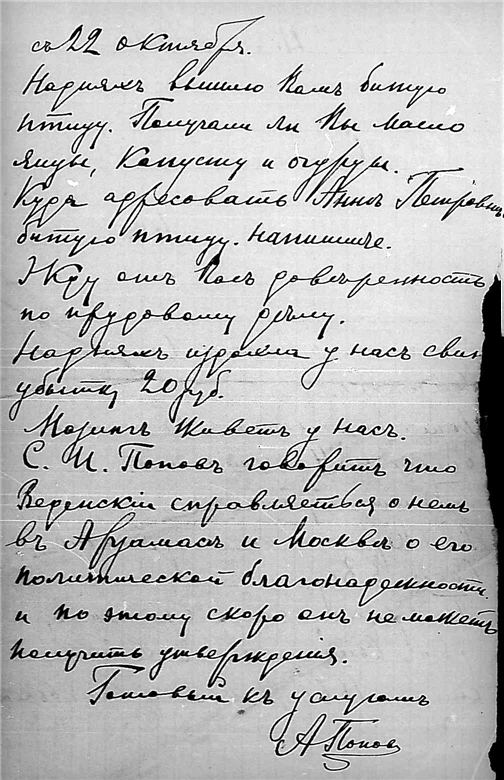 съ 22 октября.
Надняхъ вышлю Вамъ битую
птицу. Получали ли Вы масло
яйцы, капусту и огурцы.
Куда адресовать Аннѣ Петровнѣ
битую птицу. напишите.
Жду отъ Васъ довѣренность
по прудовому дѣлу.
Надняхъ издохла у насъ свин
убытку 20 руб.
живетъ у насъ.
С. И. Поповъ говоритъ что
справляеться о немъ
въ Арзамасѣ и Москвѣ о его
политической благонадежности
и по этому скоро онъ не можетъ
получить утверждения.
Готовый къ услугамъ
АПопов